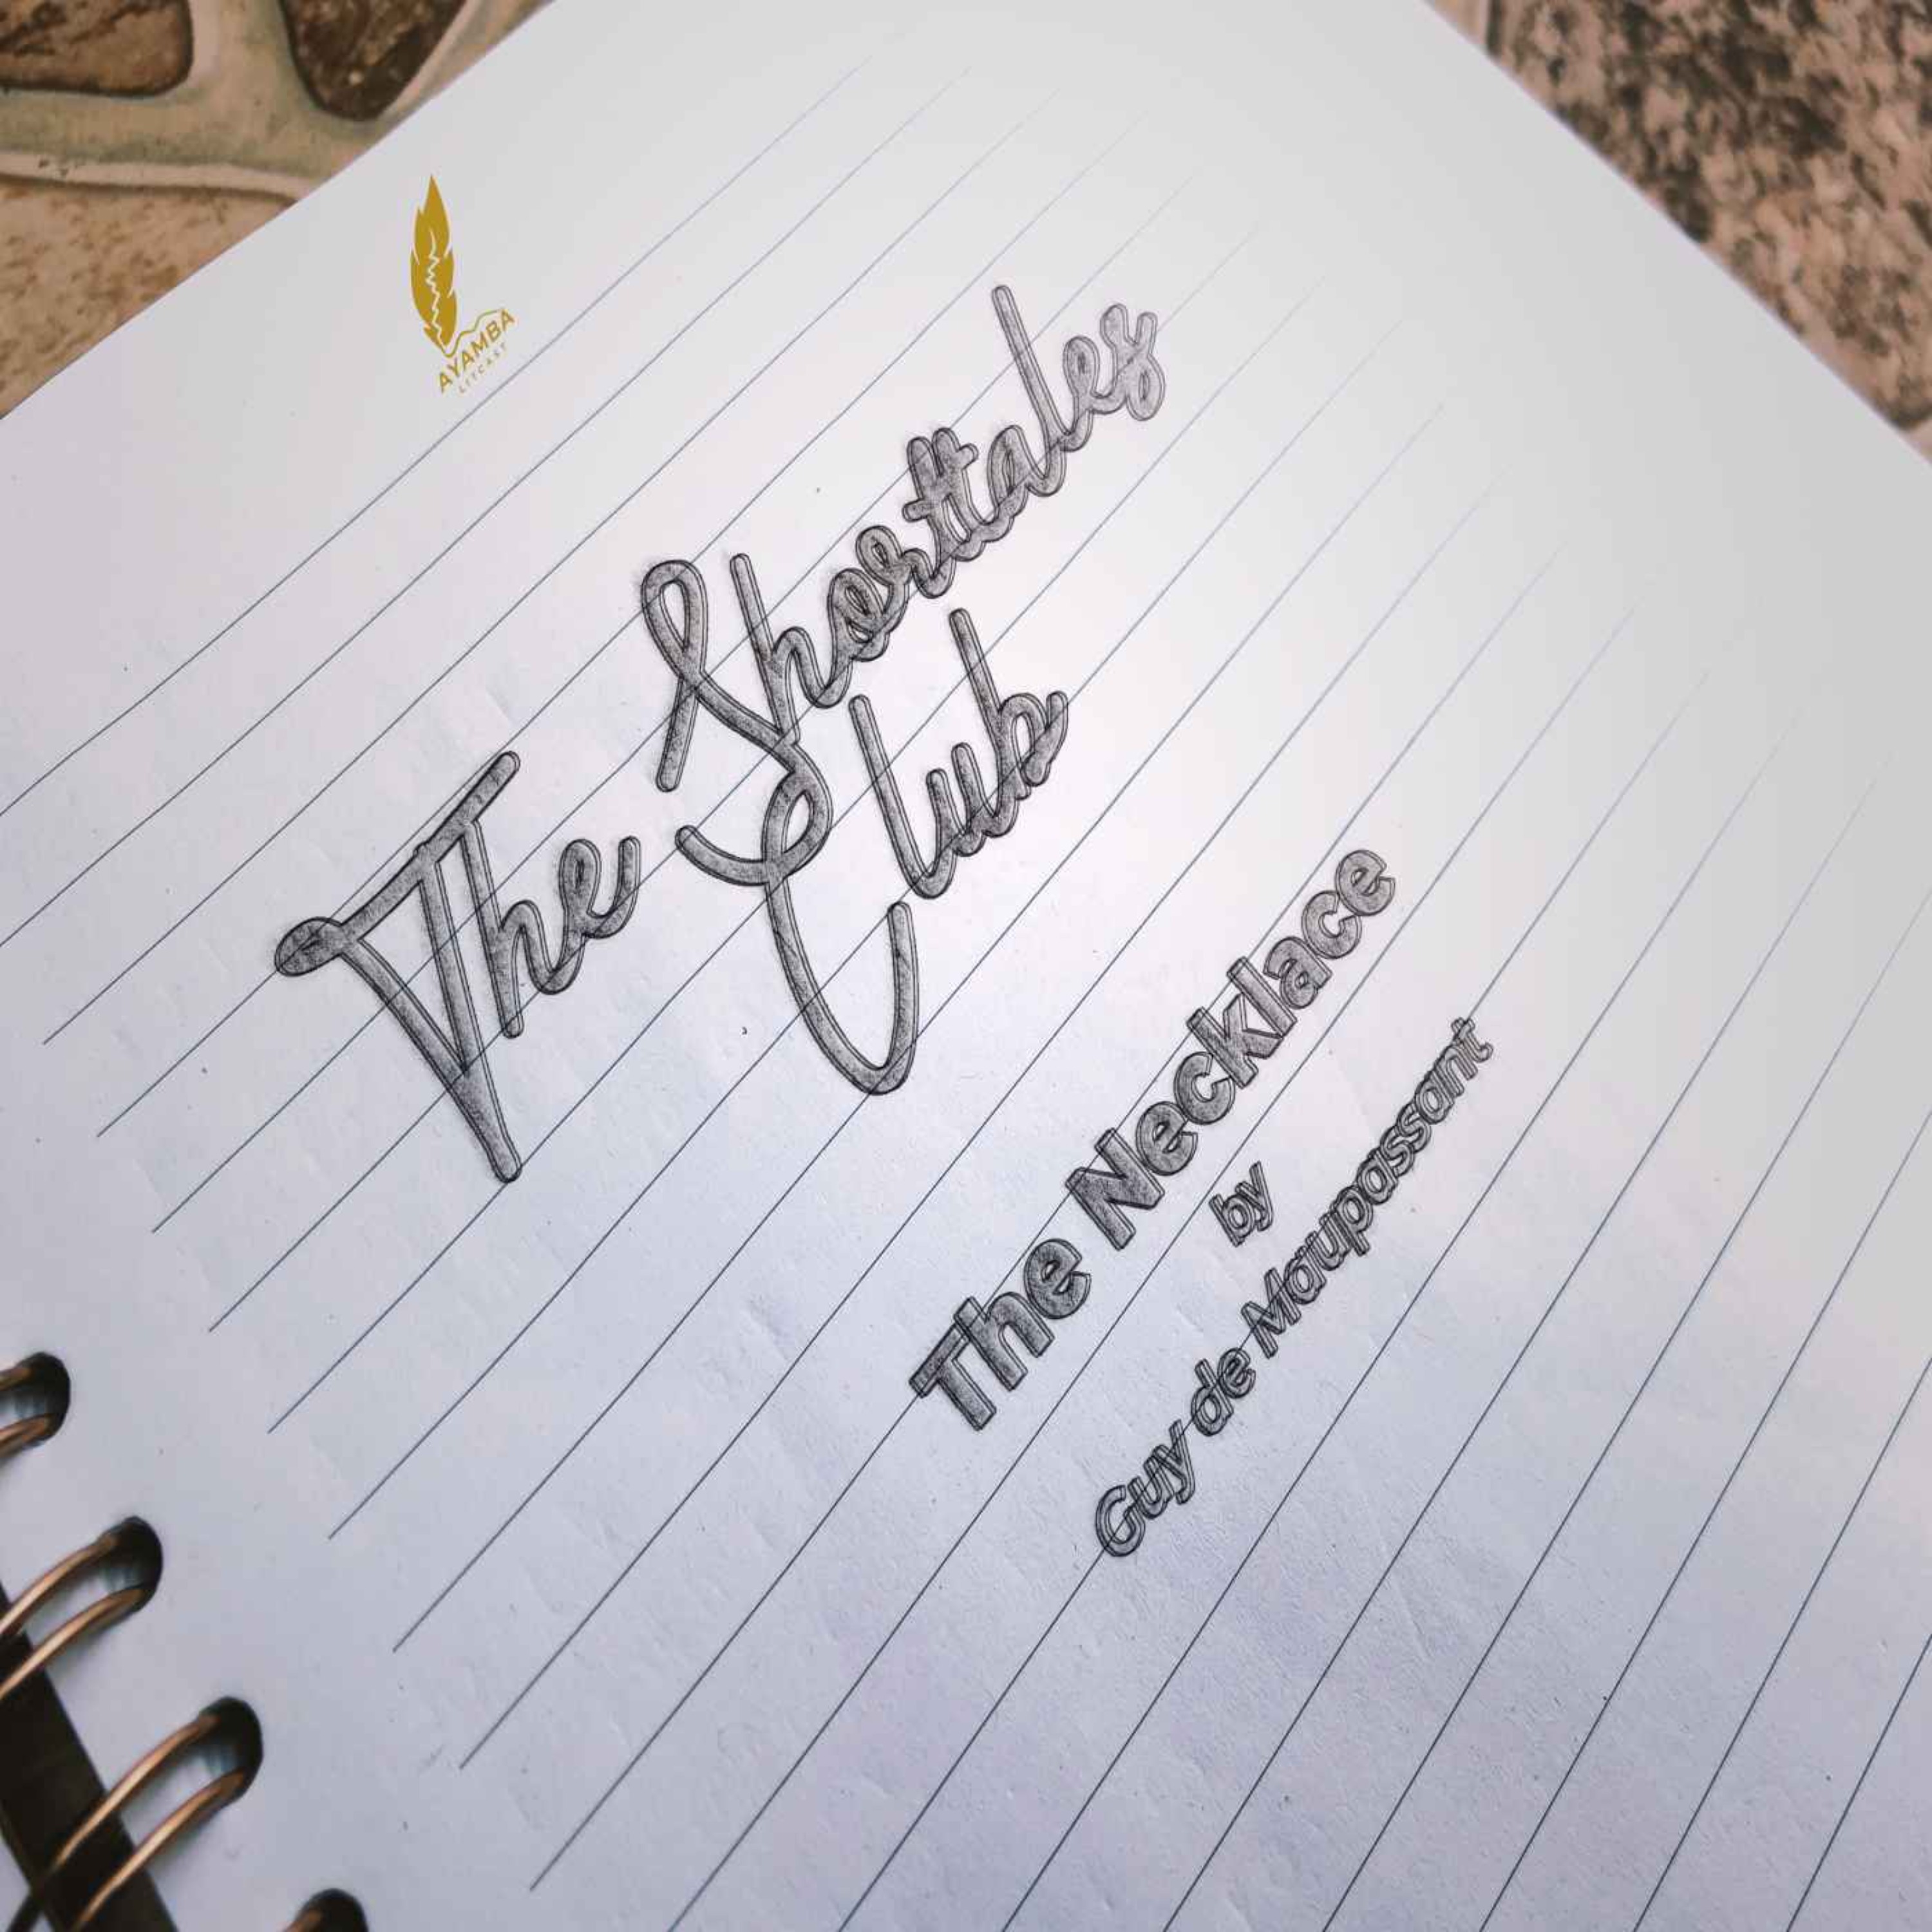 AYAMBA
LITCAST
The Shorttales
Club
The Necklace
by
Guy de Maupassant